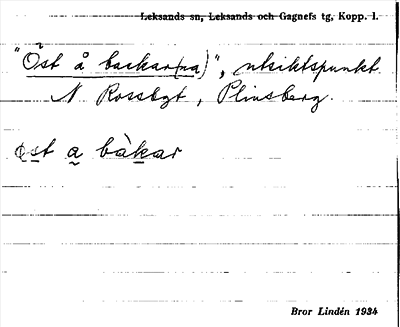 Leksands sn, Leksands och Gagnefs tg, Kopp. l.
"Öst å backar(na)", utsiktspunkt.
N Rossbyt, Plinsberg.
öst a bàkar
Bror Lindén 1934